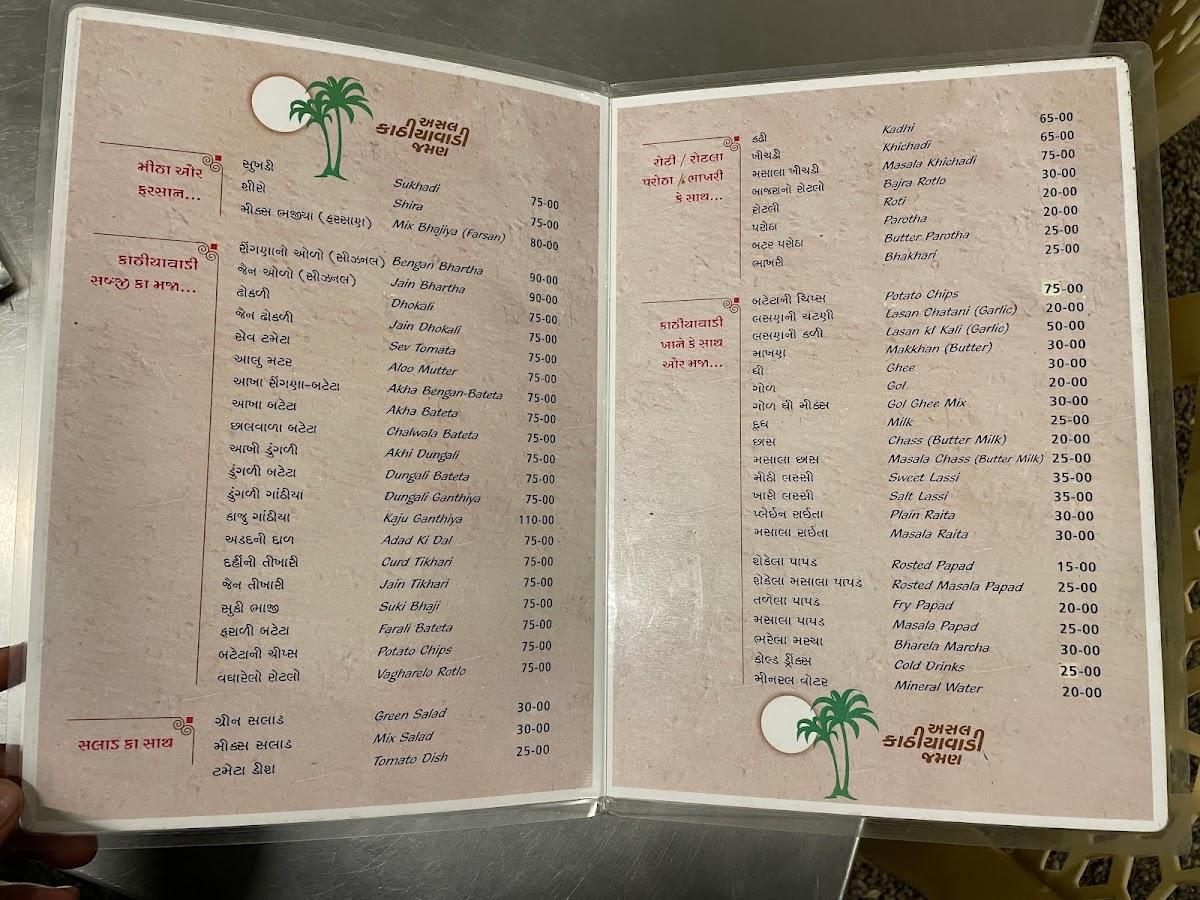 અસલ
કાઠીયાવાડી
જમણ
મીઠા ઔર
ફરસાન...
સુખડી Sukhadi 75-00
શીરો Shira 75-00
મીક્સ ભજીયા (ફરસાણ) Mix Bhajiya (Farsan) 80-00
કાઠીયાવાડી
સબ્જી કા મજા...
રીંગણાનો ઓળો (સીઝનલ) Bengan Bhartha 90-00
જૈન ઓળો (સીઝનલ) Jain Bhartha 90-00
ઢોકળી Dhokali 75-00
જૈન ઢોકળી Jain Dhokali 75-00
સેવ ટમેટા Sev Tomata 75-00
આલુ મટર Aloo Mutter 75-00
આખા રીંગણા-બટેટા Akha Bengan-Bateta 75-00
આખા બટેટા Akha Bateta 75-00
છાલવાળા બટેટા Chalwala Bateta 75-00
આખી ડુંગળી Akhi Dungali 75-00
ડુંગળી બટેટા Dungali Bateta 75-00
ડુંગળી ગાંઠીયા Dungali Ganthiya 75-00
કાજુ ગાંઠીયા Kaju Ganthiya 110-00
અડદની દાળ Adad Ki Dal 75-00
દહીંની તીખારી Curd Tikhari 75-00
જૈન તીખારી Jain Tikhari 75-00
સુકી ભાજી Suki Bhaji 75-00
ફરાળી બટેટા Farali Bateta 75-00
બટેટાની ચીપ્સ Potato Chips 75-00
વઘારેલો રોટલો Vagharelo Rotlo 75-00
સલાડ કા સાથ
ગ્રીન સલાડ Green Salad 30-00
મીક્સ સલાડ Mix Salad 30-00
ટમેટા ડીશ Tomato Dish 25-00
રોટી / રોટલા
પરોઠા / ભાખરી
કે સાથ...
કઢી Kadhi 65-00
ખીચડી Khichadi 65-00
મસાલા ખીચડી Masala Khichadi 75-00
બાજરાનો રોટલો Bajra Rotlo 30-00
રોટલી Roti 20-00
પરોઠા Parotha 20-00
બટર પરોઠા Butter Parotha 25-00
ભાખરી Bhakhari 25-00
કાઠીયાવાડી
ખાને કે સાથ
ઔર મજા...
બટેટાની ચિપ્સ Potato Chips 75-00
લસણની ચટણી Lasan Chatani (Garlic) 20-00
લસણની કળી Lasan kl Kali (Garlic) 50-00
માખણ Makkhan (Butter) 30-00
ઘી Ghee 30-00
ગોળ Gol 20-00
ગોળ ઘી મીક્સ Gol Ghee Mix 30-00
દુધ Milk 25-00
છાસ Chass (Butter Milk) 20-00
મસાલા છાસ Masala Chass (Butter Milk) 25-00
મીઠી લસ્સી Sweet Lassi 35-00
ખારી લસ્સી Salt Lassi 35-00
પ્લેઈન રાઈતા Plain Raita 30-00
મસાલા રાઈતા Masala Raita 30-00
શેકેલા પાપડ Rosted Papad 15-00
શેકેલા મસાલા પાપડ Rosted Masala Papad 25-00
તળેલા પાપડ Fry Papad 20-00
મસાલા પાપડ Masala Papad 25-00
ભરેલા મરચા Bharela Marcha 30-00
કોલ્ડ ડ્રીંક્સ Cold Drinks 25-00
મીનરલ વોટર Mineral Water 20-00
અસલ
કાઠીયાવાડી
જમણ